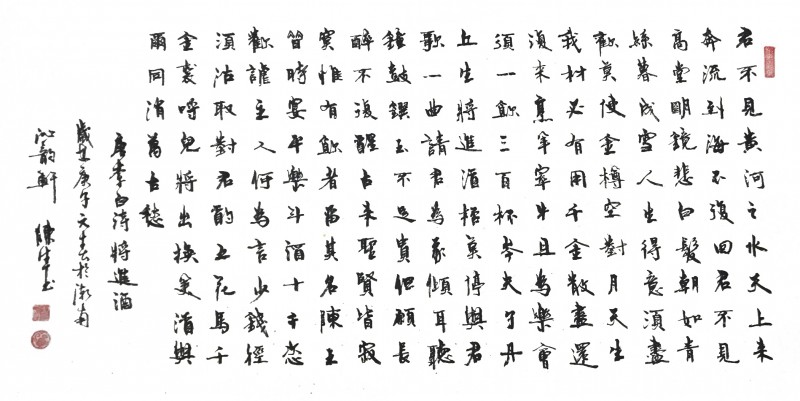 君不見黃河之水天上来
奔流到海不復回君不見
高堂明鏡悲白髮朝如青
絲暮成雪人生得意須盡
歡莫使金樽空對月天生
我材必有用千金散盡還
復来烹羊宰牛且為樂會
須一飲三百杯岑夫子丹
丘生將進酒杯莫停與君
歌一曲請君為我傾耳聽
鐘鼓饌玉不足貴但願長
醉不復醒古来聖賢皆寂
寞惟有飲者留其名陳王
昔時宴平樂斗酒十千恣
歡謔主人何為言少錢徑
須沽取對君酌五花馬千
金裘呼兒將出換美酒與
爾同消萬古愁
唐李白詩將進酒
歲在庚
沁韻軒 陳